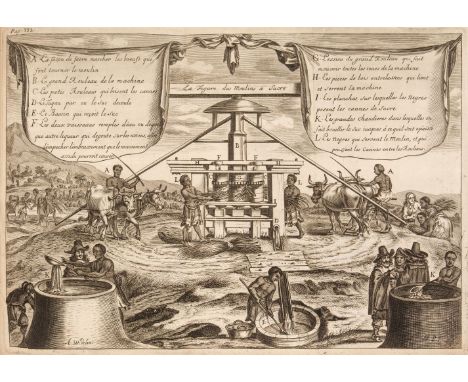 Pag. 332
A. La façon de faire marcher les bœufs qui
font tourner le moulin
B. Le grand Rouleau de la machine
C. Les petits Rouleaux qui brisent les cannes
D. Le tuyau par ou le suc decoule
E. Le Bassin qui reçoit le suc
F. Les deux vaisseaux remplis d'eau ou de
autre liqueur qui
La Figure des Moulins à Sucre
G. L'essieu du grand Rouleau qui fait
mouvoir toutes les roues de la machine
H. Les pieces de bois entrelassées qui lient
et serrent la machine
I. Les planches sur lesquelles les Negres
posent les cannes de Sucre
K. Les grandes Chaudieres dans lesquelles on
fait bouillir le Suc jusques a ce quil soit epaissi
L. Les Negres qui servent le Moulin, et qui
poussent les Cannes entre les Rouleaux
A
B
A